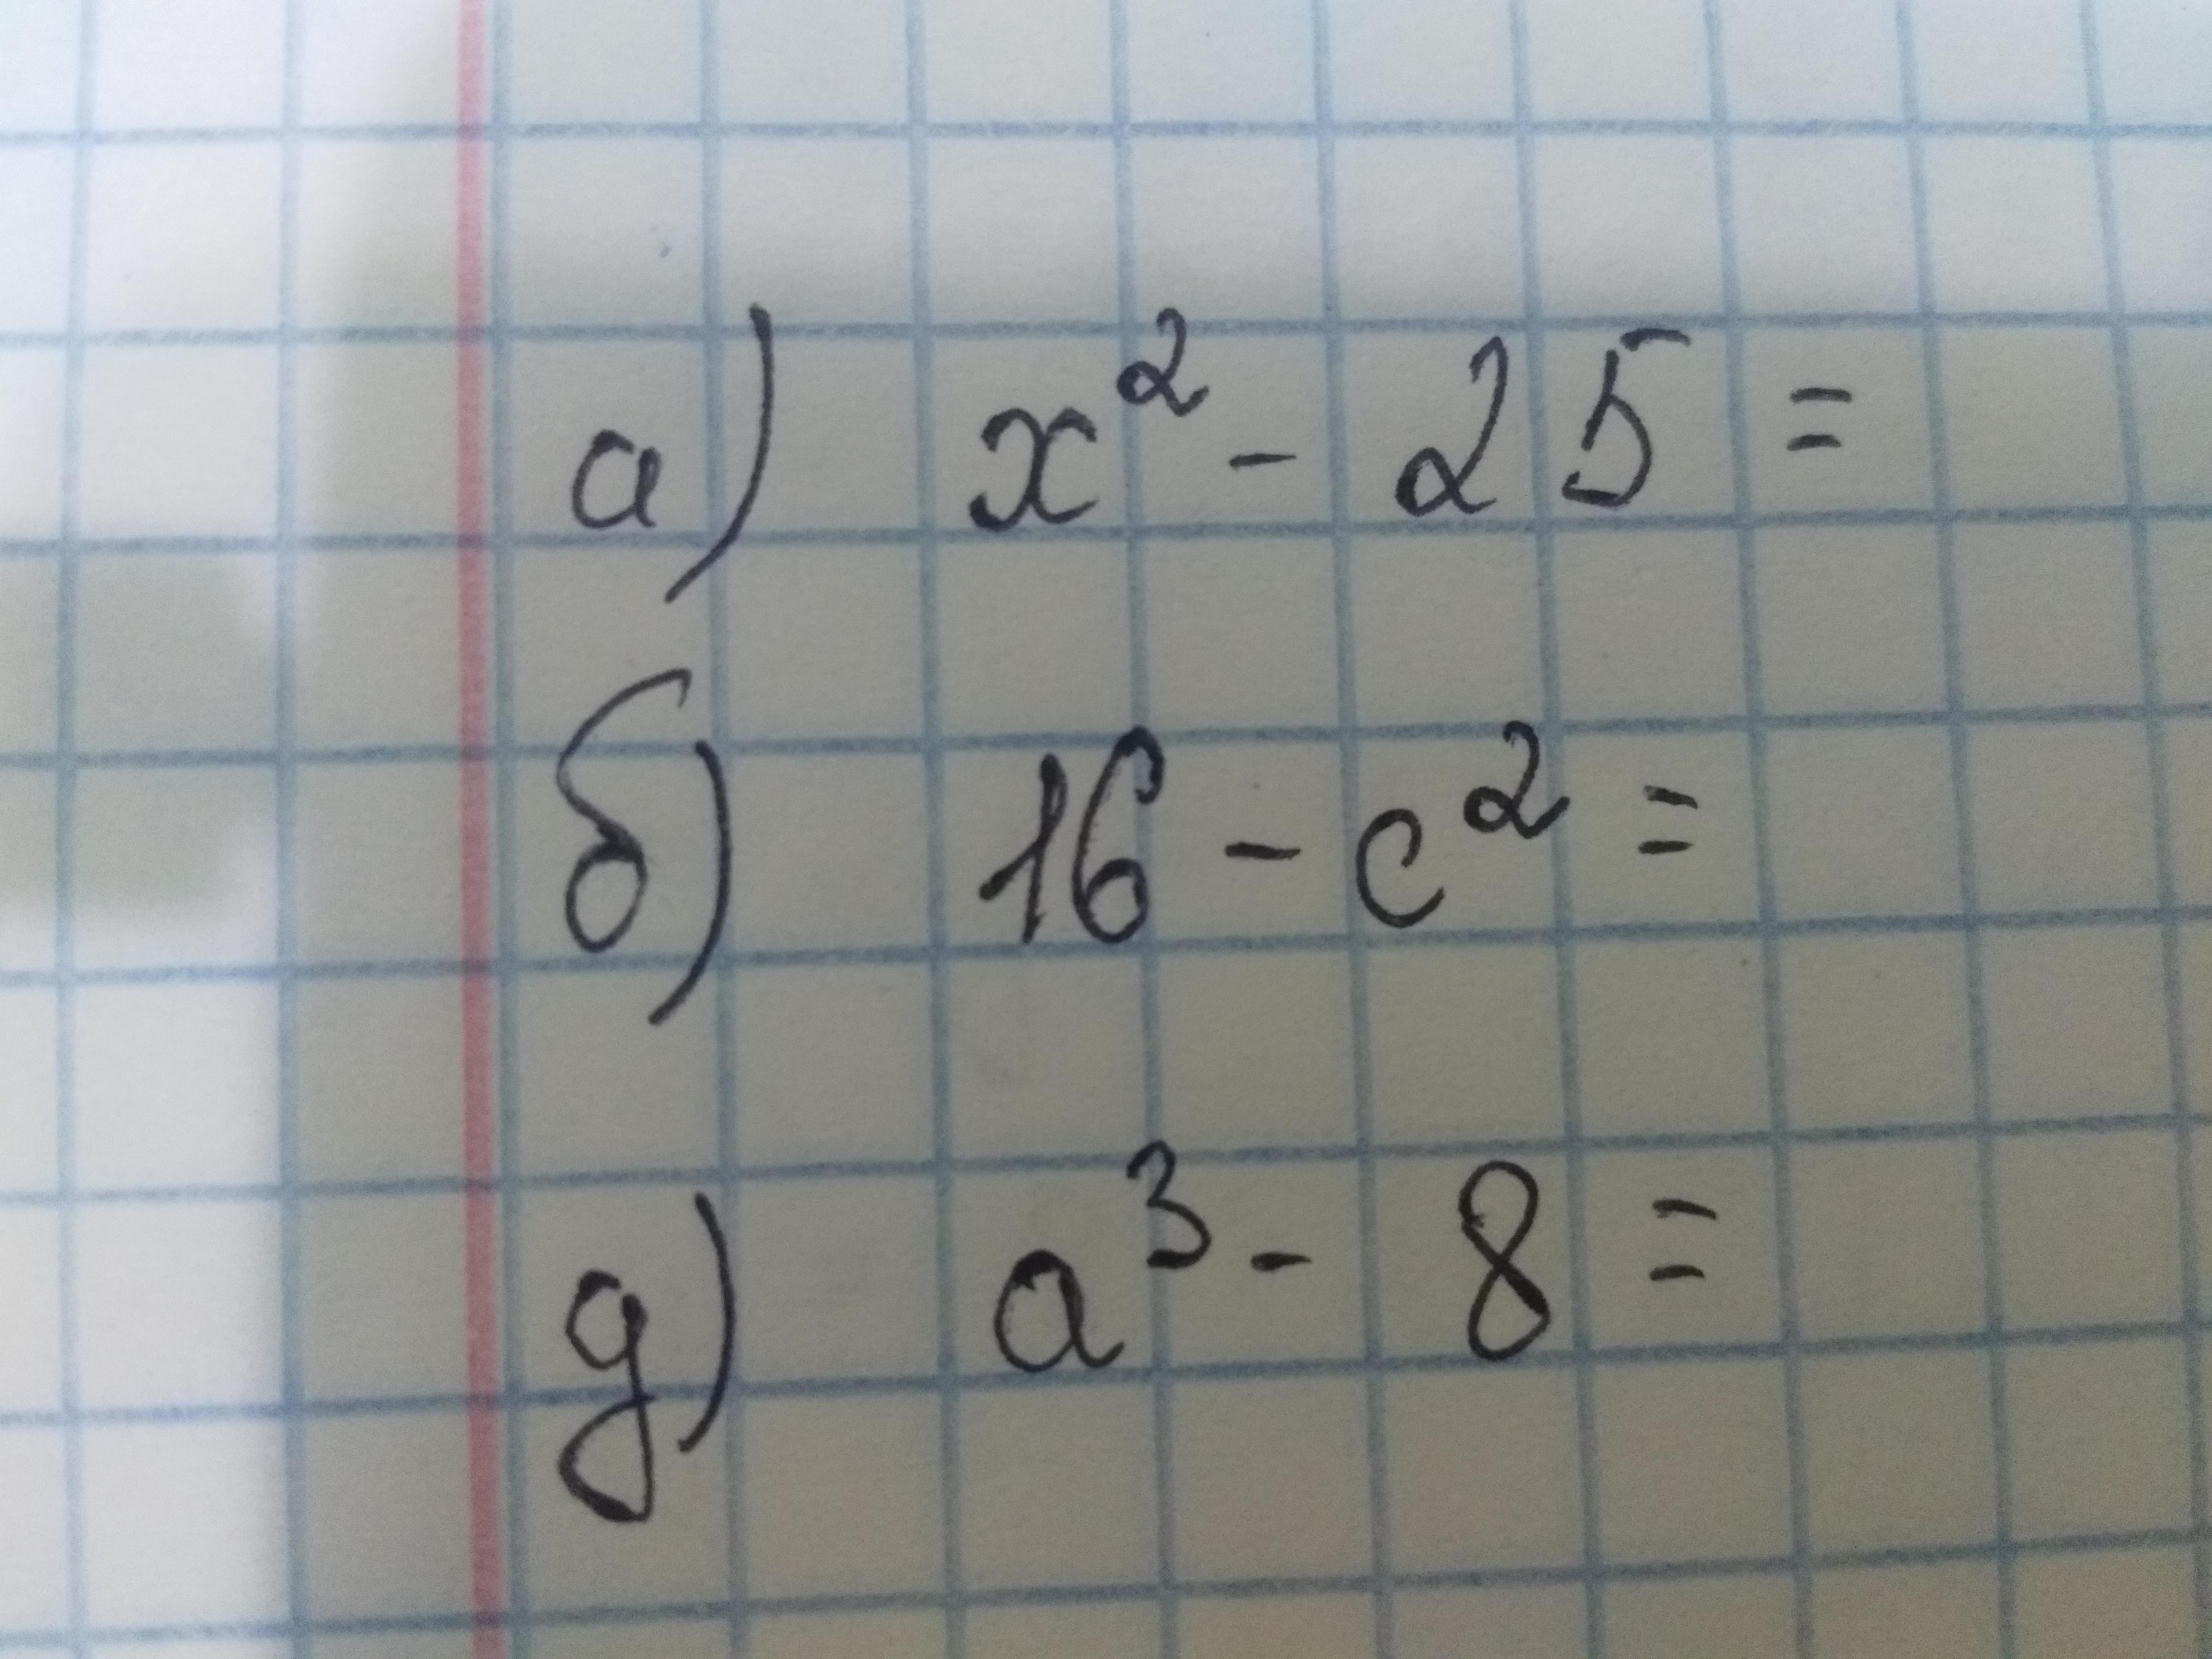 а) x² - 25 =
б) 16 - c² =
д) a³ - 8 =